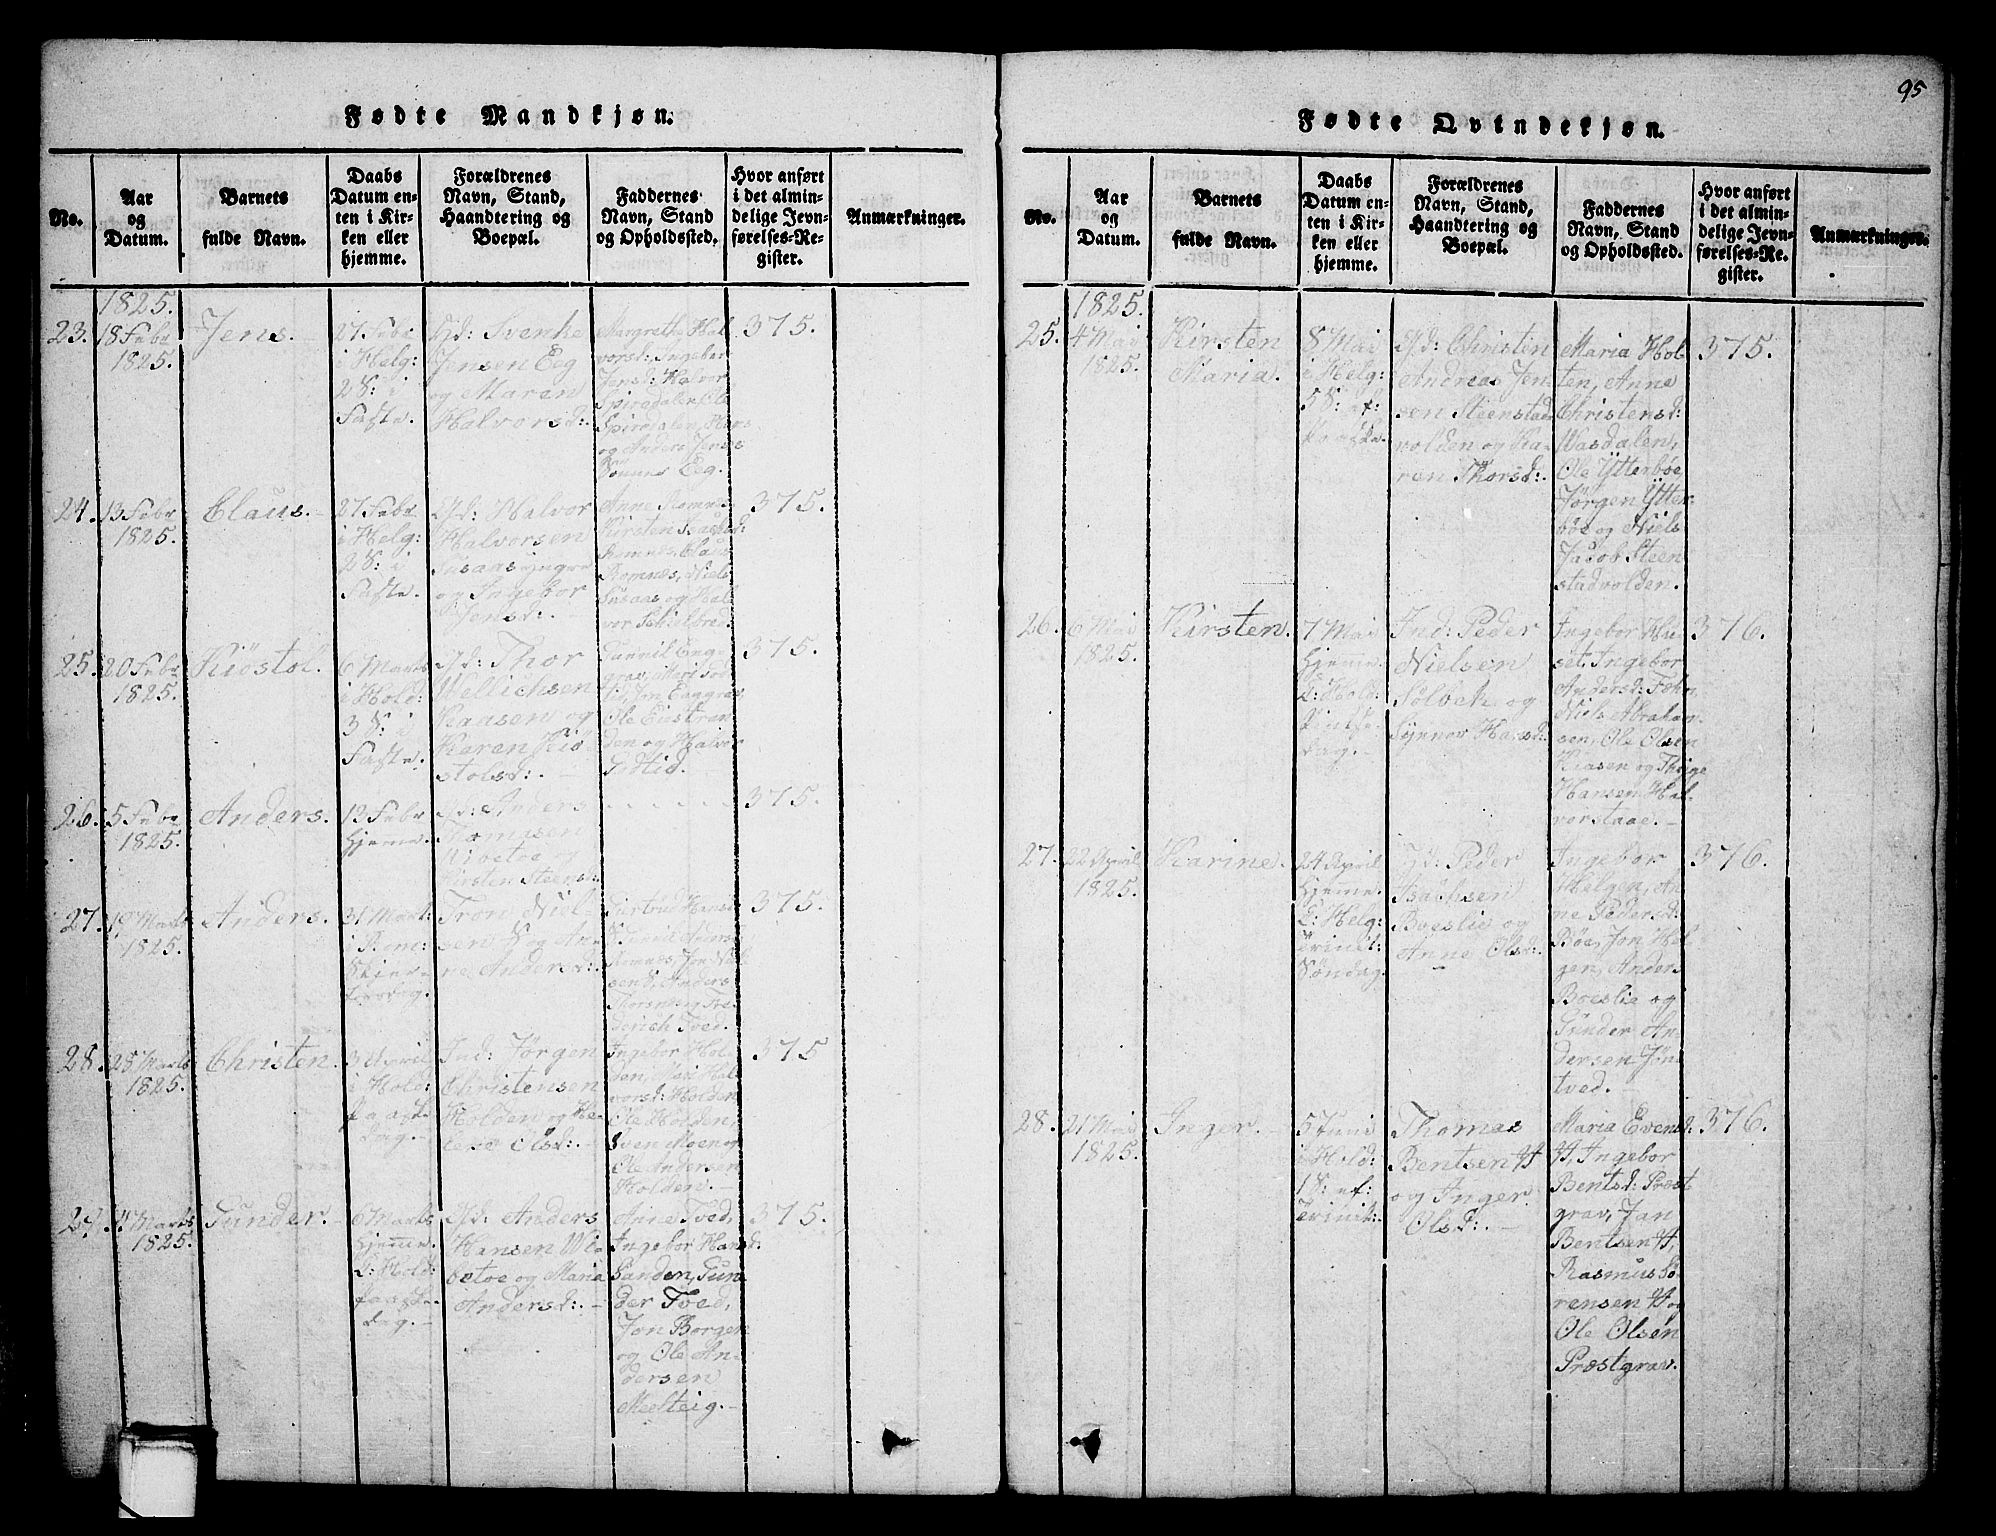 95
Fødte Mandkjøn.
No.
Aar
og
Datum.
Barnets
fulde Navn.
Daabs
Datum en-
ten i Kir-
ken eller
hjemme.
Forældrenes
Navn, Stand,
Haandtering og
Boepæl.
Faddernes
Navn, Stand
og Opholdssted.
Hvor anført
i det almin-
delige Jevn-
førelses-Re-
gister.
Anmærkninger.
1825.
23.
18 Febr
1825.
Jens.
27 Febr
i Helg:
2 S: i
Faste.
Gd: Svenke
Jensen Eeg
og Maren
Halvorsd:
Margrethe Hal
vorsd: Ingebor
Jensd: Halvor
Spiredalen Ole
Spiredalen, Hans
og Anders Jens
Sønner Eeg.
375.
24.
13 Febr
1825.
Claus.
27 Febr
i Helg:
2 S: i
Faste.
Gd: Halvor
Halvorsen
Susaas yngre
og Ingebor
Jensd:
Anne Romnes
Kirsten Isachsd:
Romnes, Claus
Romnes, Niels
Susaas og Hal
vor Schielbred.
375.
25.
20 Febr
1825.
Kiøstol.
6 Marts
i Hold:
3 S: i
Faste.
Gd: Thor
Wellichsen
Kaasen og
Karen Kiø
stolsd:
Gunnil Eng-
grav, Mari Tod
tid, Jon Enggrav
Ole Eiestran
den og Halvor
Todtid.
375.
26.
5 Febr
1825.
Anders.
13 Febr
Hjeme.
Gd: Anders
Thomasen
Wibetoe og
Kirsten Steensd:
375.
27.
19 Marts
1825.
Anders.
31 Mart:
i Rom:
Skjer-
torsdag.
Tron Niel-
sen S og An
ne Andersd:
Giertrud Hansd:
S Gunnil Andersd:
Romnes, Jon Niel
sen S, Anders
Thorsnberg Fre-
derich Tved.
375.
28.
28 Marts
1825.
Christen.
3 April
i Hold:
Paaske
dag.
Ind: Jørgen
Christensen
Holden og He-
lene Olsd:
Ingebor Hol-
den, Mari Hal
vorsd: Holden
Ole Holden,
Sven Moen og
Ole Andersen
Holden.
375
29.
4 Marts
1825.
Gunder.
6 Marts
Hjemme.
C: Hold:
Paaske-
dag.
Gd: Anders
Hansen Wi-
betoe og Maria
Andersd:
Anne Tved,
Ingebor Hansd:
Sanden, Gun
der Tved,
Jon Borgen
og Ole An-
dersen
Melteig.
375.
Fødte Qvindekjøn.
No.
Aar
og
Datum.
Barnets
fulde Navn.
Daabs
Datum en-
ten i Kir-
ken eller
hjemme.
Forældrenes
Navn, Stand,
Haandtering og
Boepæl.
Faddernes
Navn, Stand
og Opholdssted.
Hvor anført
i det almin-
delige Jevn-
førelses-Re-
gister.
Anmærkninger.
1825.
25.
4 Mai
1825.
Kirsten
Maria.
8 Mai
i Helg:
5 S: ef:
Paaske.
Gd: Christen
Andreas Jen
sen Steenstad
volden og Ka-
ren Thorsd:
Maria Hol
ten, Anne
Christensd:
Wasdalen,
Ole Ytterbøe
Jørgen Ytter
bøe og Niels
Jacob Steen
stadvolden.
375.
26.
6 Mai
1825.
Kirsten.
7 Mai
Hjeme
C: Hold:
Pintse-
dag.
Ind: Peder
Nielsen
Solvek og
Synnov Hansd:
Ingebor Hu
set, Ingebor
Andersd: Fehn
Niels Abraham
sen, Ole Olsen
Kiasen og Thrige
Hansen Hal
vorstaae.
376.
27.
22 April
1825.
Karine.
24 April
Hjeme.
C: Helg:
Trinit:
Søndag.
Gd: Peder
Isachsen
Boeslie og
Anne Olsd:
Ingebor
Helgen, An
ne Pedersd:
Bøe, Jon Hel
gen, Anders
Boeslie og
Gunder An
dersen Jøn
tved.
376.
28.
21 Mai
1825.
Inger.
5 Juni
i Hold:
1 S: ef:
Trinit:
Thomas
Bentsen H
og Inger
Olsd:
Maria Evensd:
H, Ingebor
Bentsd: Præst
grav, Jan
Bentsen H,
Rasmus Sø
rensen H og
Ole Olsen
Præstgrav.
376.